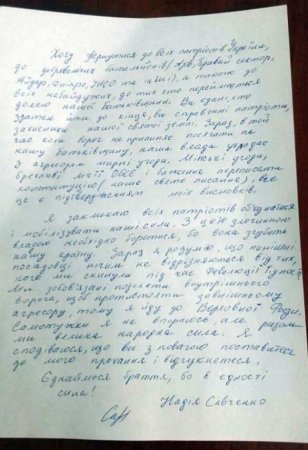 Хочу звернутися до всіх патріотів України,
до добровольчих батальйонів (Азов, Правий сектор,
Айдар, Дніпро, УНСО та інші), а також до
всіх небайдужих, до тих хто переймається
долею нашої Батьківщини. Ви єдині, хто
здатен йти до кінця, ви справжні патріоти,
захисники нашої святої землі. Зараз, в той
час коли ворог не припиняє посягати на
нашу Батьківщину, наша влада укладає
з агресором мирні угоди. Мінські угоди,
брехливі місії ОБСЄ і бажання підписати
конституцію (наше святе писання), все
це є підтвердженням моїх висновків.
Я закликаю всіх патріотів об'єднатися
і мобілізувати наші сили. З цією злочинною
владою необхідно боротися, бо вона згубить
нашу країну. Зараз я розумію, що нинішні
посадовці нічим не відрізняються від тих,
кого ми скинули під час Революції Гідності.
Ми зобов'язані подолати внутрішнього
ворога, щоб протистояти зовнішньому
агресору, тому я йду до Верховної Ради.
Самотужки я не впораюсь, але разом
ми велика народна сила. Я
сподіваюся, що ви з повагою поставитесь
до мого прохання і відгукнетеся.
Єднаймося браття, бо в єдності
сила!
Надія Савченко